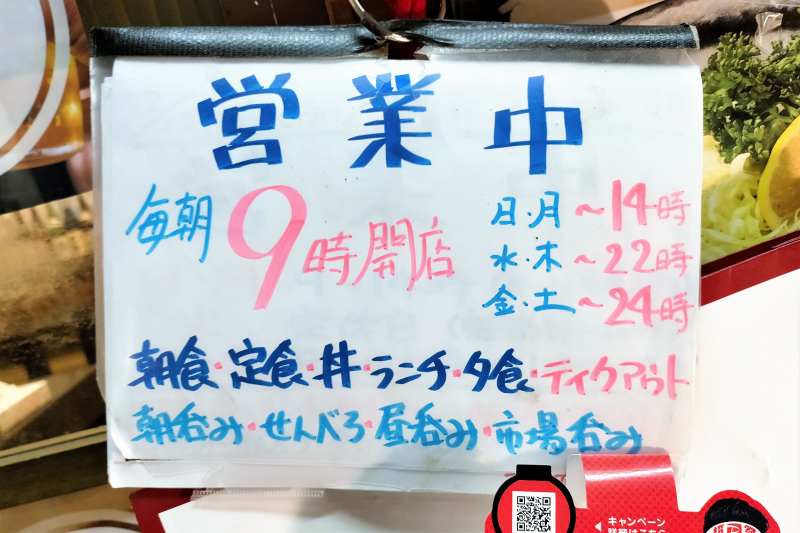 営業中
毎朝9時開店
日・月~14時
水・木~22時
金・土~24時
朝食・定食・丼・ランチ・夕食・テイクアウト
朝呑み・せんべろ・昼呑み・市場呑み
キャンペーン
詳細はこちら